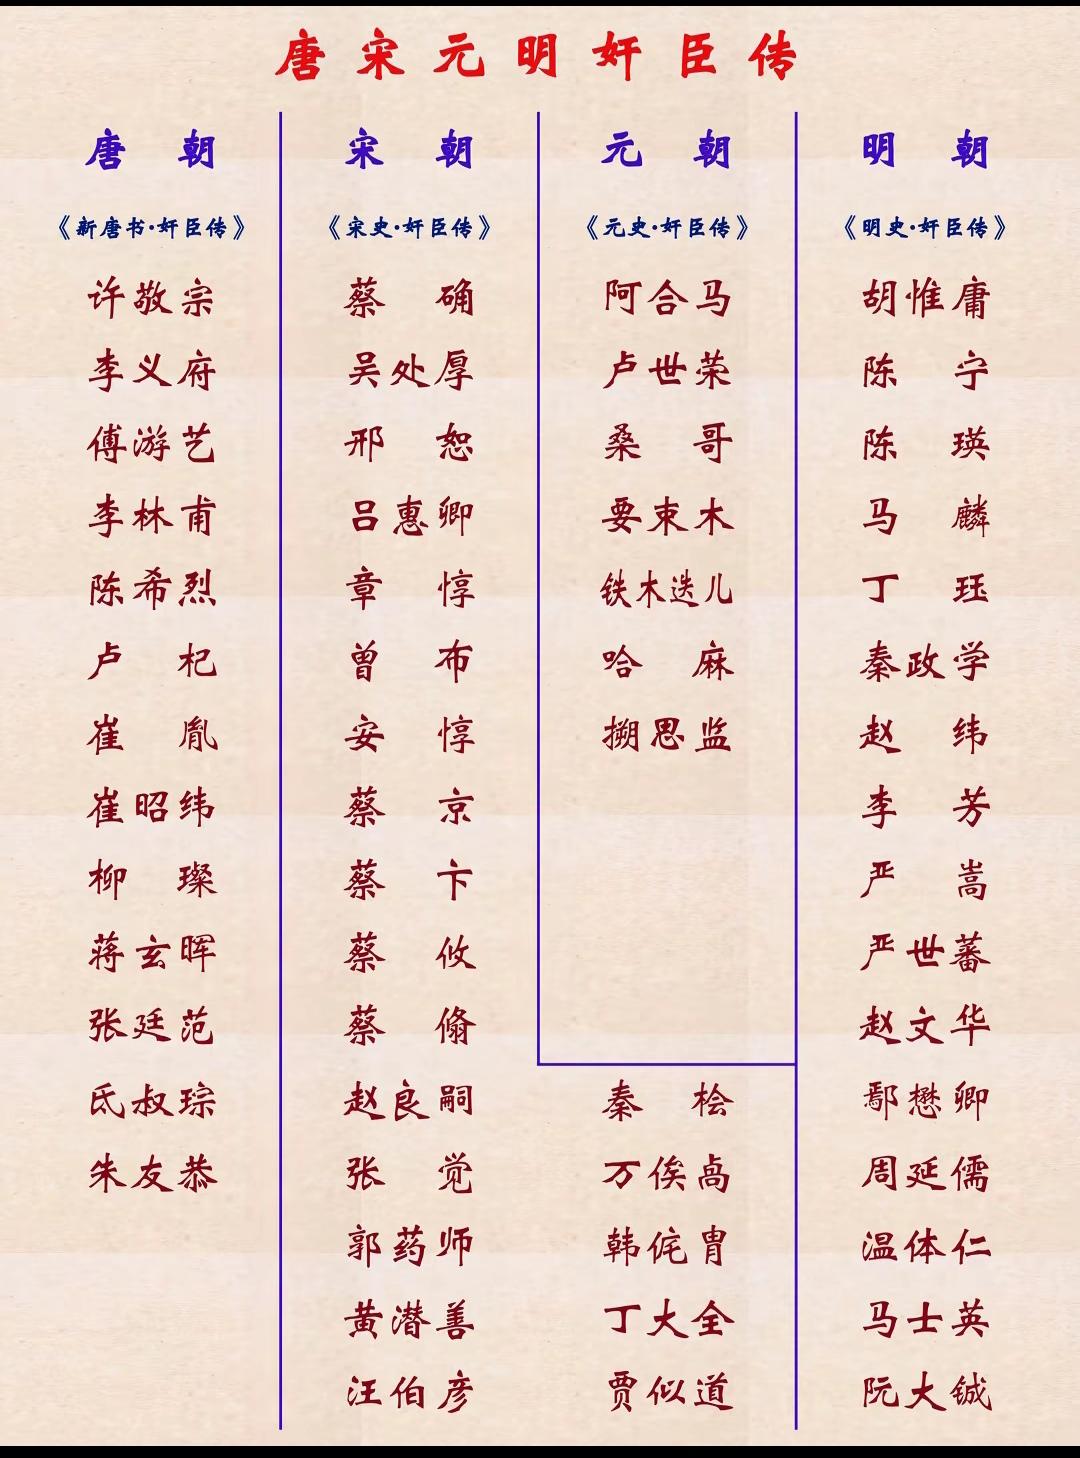 唐宋元明奸臣传
唐朝
《新唐书·奸臣传》
许敬宗
李义府
傅游艺
李林甫
陈希烈
卢杞
崔胤
崔昭纬
柳璨
蒋玄晖
张廷范
氏叔琮
朱友恭
宋朝
《宋史·奸臣传》
蔡确
吴处厚
邢恕
吕惠卿
章惇
曾布
安惇
蔡京
蔡卞
蔡攸
蔡翛
赵良嗣
张觉
郭药师
黄潜善
汪伯彦
秦桧
万俟卨
韩侂胄
丁大全
贾似道
元朝
《元史·奸臣传》
阿合马
卢世荣
桑哥
要束木
铁木迭儿
哈麻
搠思监
明朝
《明史·奸臣传》
胡惟庸
陈宁
陈瑛
马麟
丁珏
秦政学
赵纬
李芳
严嵩
严世蕃
赵文华
鄢懋卿
周延儒
温体仁
马士英
阮大铖